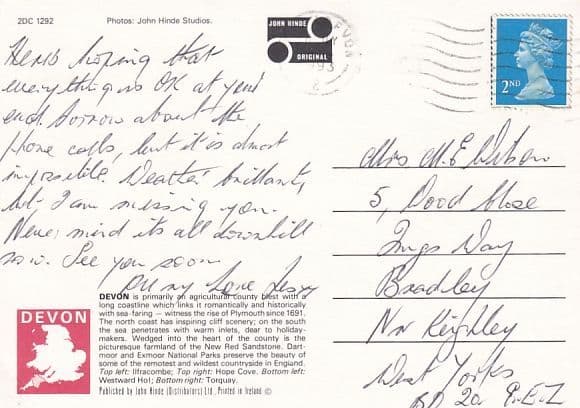 2DC 1292
Photos: John Hinde Studios.
JOHN HINDE
ORIGINAL
DEVON
2ND
Here's hoping that
everything is OK at your
end. Sorrow about the
phone calls, but it is almost
impossible. Weather brilliant,
but I am missing you.
Never mind its all downhill
now. See you soon
All my Love
Mrs M.E.
5, Close
Ings Way
Bradley
Nr Keighley
West Yorks
BD 20
DEVON
DEVON is primarily an agricultural county blest with a
long coastline which links it romantically and historically
with sea-faring — witness the rise of Plymouth since 1691.
The north coast has inspiring cliff scenery; on the south
the sea penetrates with warm inlets, dear to holiday-
makers. Wedged into the heart of the county is the
picturesque farmland of the New Red Sandstone. Dart-
moor and Exmoor National Parks preserve the beauty of
some of the remotest and wildest countryside in England.
Top left: Ilfracombe; Top right: Hope Cove. Bottom left:
Westward Ho!; Bottom right: Torquay.
Published by John Hinde (Distributors) Ltd. Printed in Ireland ©